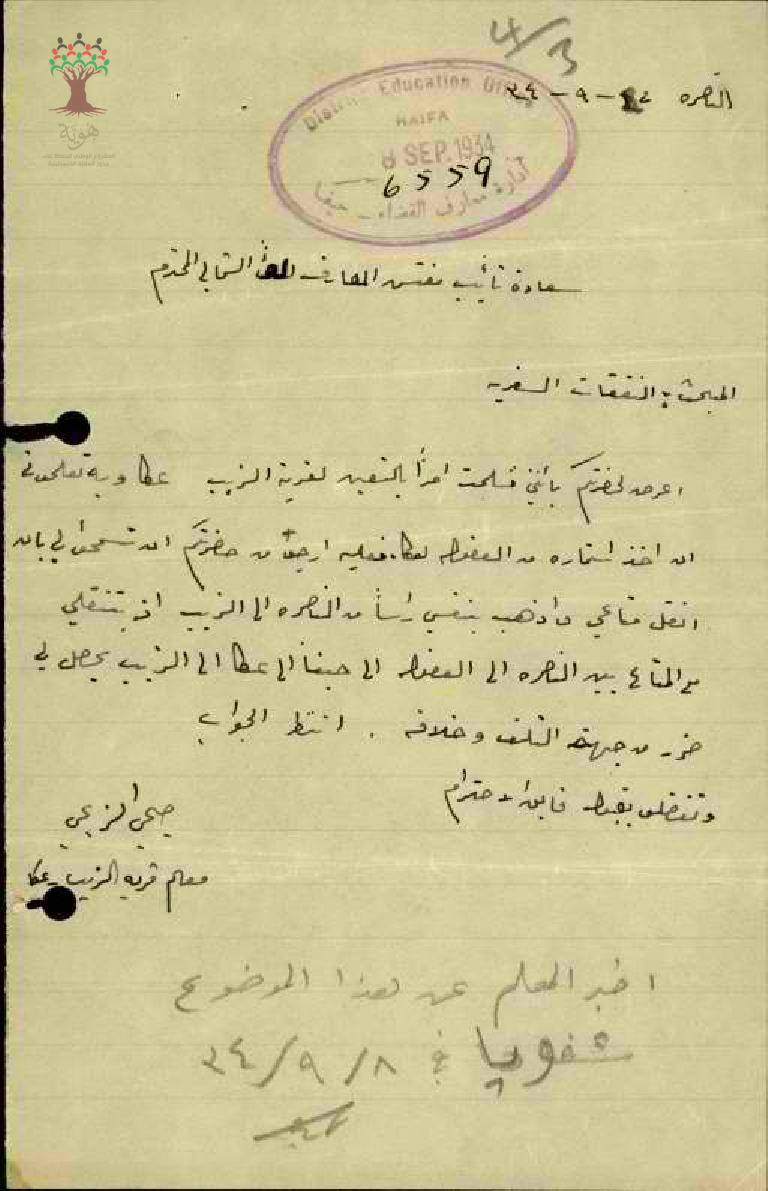 4/3
الناصره ٣٤-٩-
District Education Office
HAIFA
SEP. 1934
6559
ادارة معارف القضاء - حيفا
هوية
سعادة نائب مفتش المعارف الشمالي المحترم
المبحث: النفقات السفريه
اعرض لحضرتكم بأنني تسلمت امراً بالتعيين لقرية الزيب عكا وبه تعلموني
ان اخذ استماره من لعكا. فعليه ارجو من حضرتكم ان تسمحوا لي بان
انقل متاعي واذهب بنفسي رأساً من الناصره الى الزيب اذ بتنقلي
مع المتاع بين الناصره الى الى حيفا الى عكا الى الزيب يحصل لي
ضرر من جهة التلف وخلافه . انتظر الجواب
وتفضلوا بقبول فايق الاحترام
صبحي الزعبي
معلم قرية الزيب - عكا
اخبر المعلم عن هذا الموضوع
شفويا في ٣٤/٩/٨